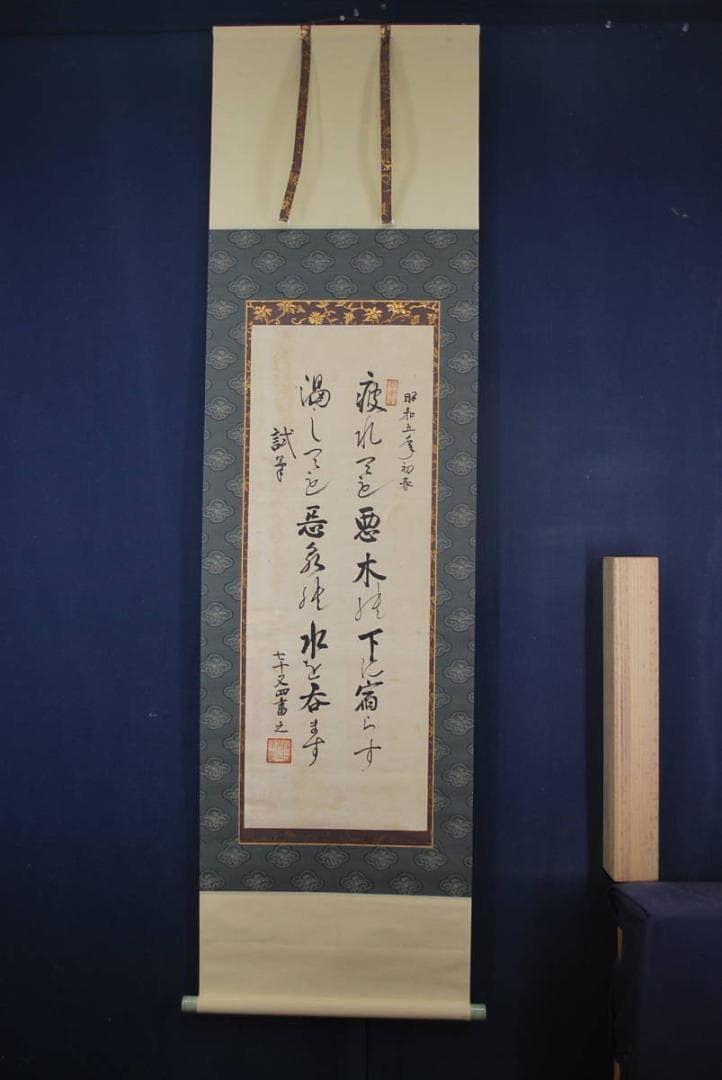 昭和五年初春
疲れても悪木の下に宿らす
渇しても悪泉の水を呑ます
試筆
七十又四書之